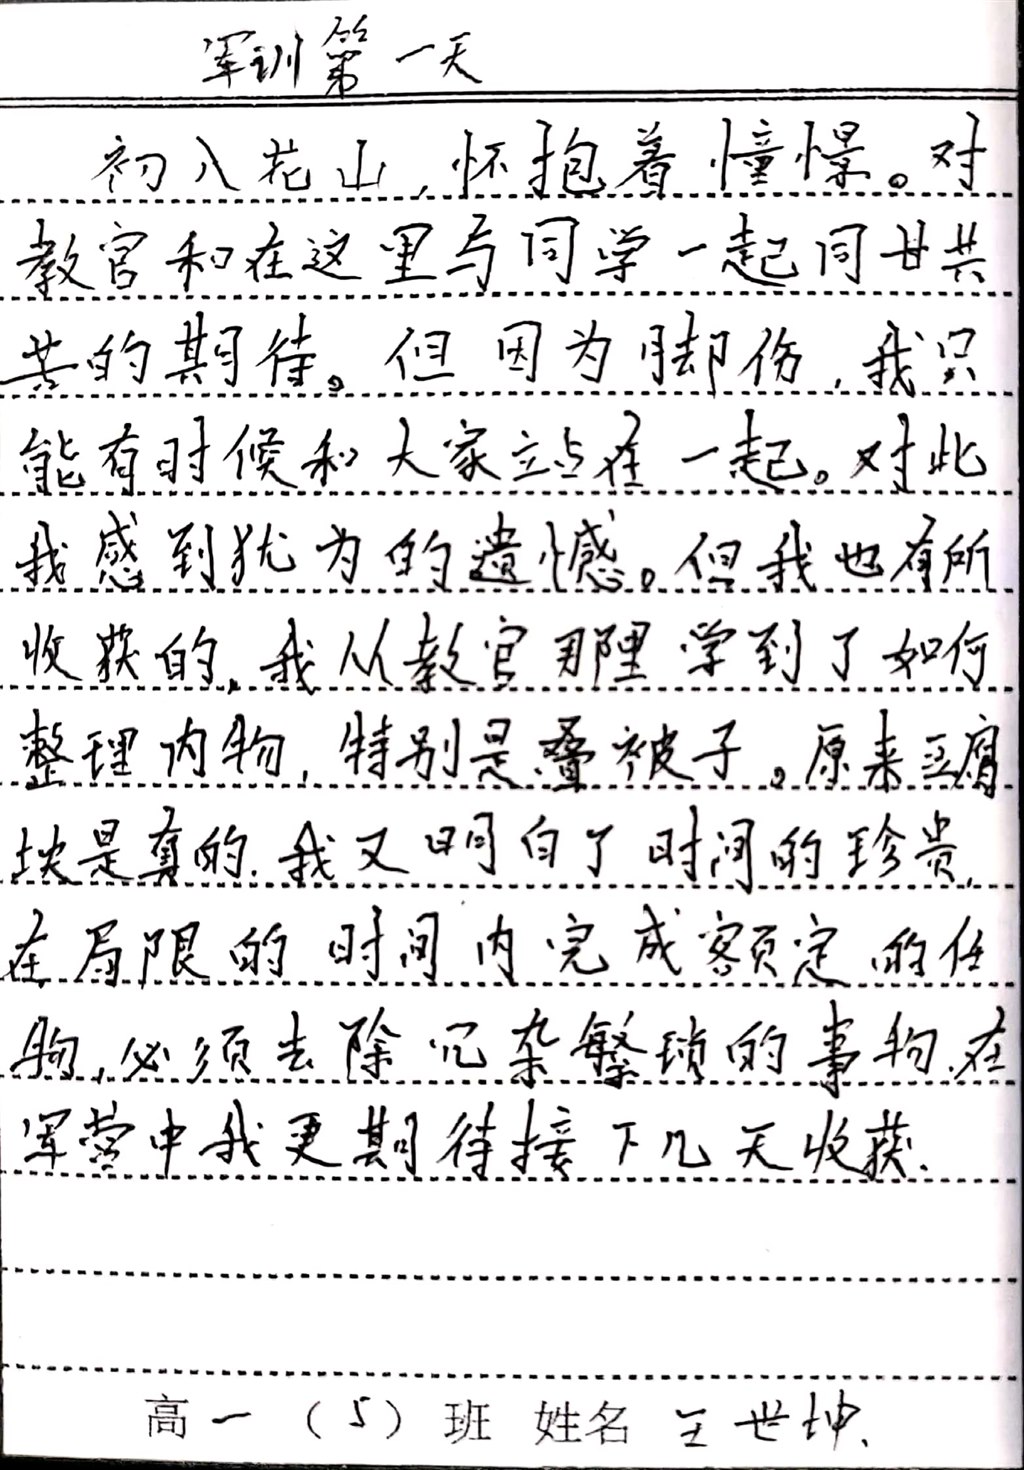 军训第一天
初入花山,怀抱着憧憬。对
教官和在这里与同学一起同甘共
苦的期待。但因为脚伤,我只
能有时候和大家站在一起。对此
我感到犹为的遗憾。但我也有所
收获的,我从教官那里学到了如何
整理内物,特别是叠被子。原来豆腐
块是真的.我又明白了时间的珍贵,
在局限的时间内完成额定的任
物,必须去除冗杂繁琐的事物.在
军营中我更期待接下几天收获.
高一(5)班 姓名 王世坤.